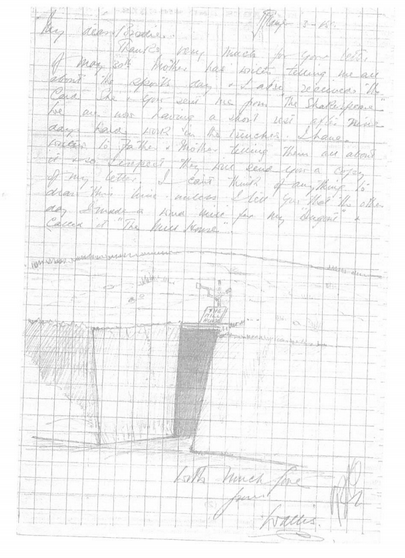 My dear Boodie.
Thanks very much for your letter
of May 30th Mother has written telling me all
about the sports day & I also received the
Card She & You sent me from the Shakespeare
We are now having a short rest after nine
day hard work in the trenches. I have
written to Father & Mother telling them all about
it so I expect they will send you a copy
of my letter. I can't think of anything to
draw this time unless I tell you that the other
day I made a wind mill for my dugout &
Called it "The Mill House"
THE MILL HOUSE
With much love
from
Wallis.